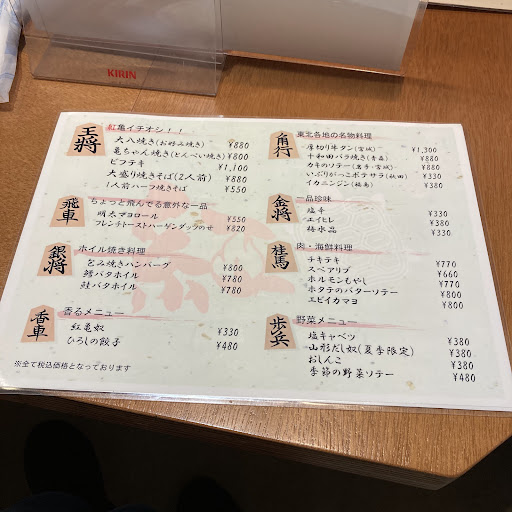 KIRIN
王将
紅亀イチオシ！！
大八焼き(お好み焼き) ¥880
亀ちゃん焼き(とんぺい焼き) ¥800
ビフテキ ¥1,100
大盛り焼きそば(2人前) ¥880
1人前ハーフ焼きそば ¥550
飛車
ちょっと飛んでる意外な一品
明太マヨロール ¥550
フレンチトーストハーゲンダッツのせ ¥820
銀将
ホイル焼き料理
包み焼きハンバーグ ¥800
鱈バタホイル ¥780
鮭バタホイル ¥780
香車
香るメニュー
紅亀奴 ¥330
ひろしの餃子 ¥480
※全て税込価格となっております
角行
東北各地の名物料理
厚切り牛タン(宮城) ¥1,300
十和田バラ焼き(青森) ¥880
カキのソテー(岩手・宮城) ¥880
いぶりがっこポテサラ(秋田) ¥330
イカニンジン(福島) ¥380
金将
一品珍味
塩辛 ¥330
エイヒレ ¥380
梅水晶 ¥330
桂馬
肉・海鮮料理
チキテキ ¥770
スペアリブ ¥660
ホルモンもやし ¥770
ホタテのバターソテー ¥800
エビイカマヨ ¥800
歩兵
野菜メニュー
塩キャベツ ¥380
山形だし奴(夏季限定) ¥380
おしんこ ¥380
季節の野菜ソテー ¥480